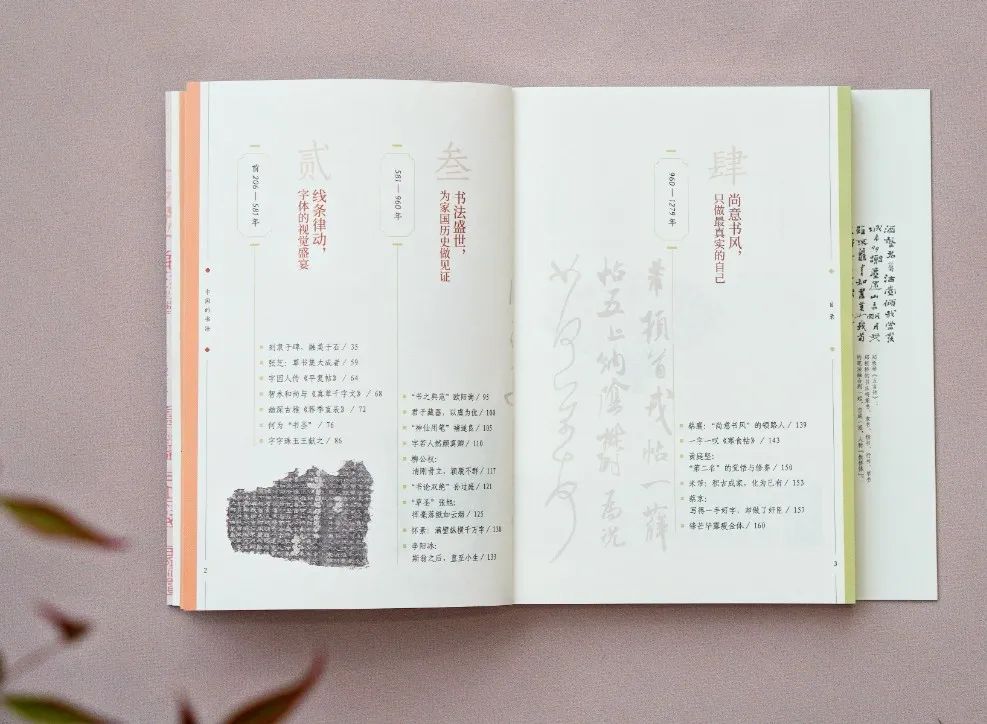 贰
线条律动，
字体的视觉盛宴
前206—581年
张芝：草书集大成者 / 59
字因人传《平复帖》 / 64
智永和尚与《真草千字文》 / 68
幽深古雅《荐季直表》 / 72
何为“书圣” / 76
字字珠玉王献之 / 86
叁
书法盛世，
为家国历史做见证
581—960年
“书之典范”欧阳询 / 95
君子藏器，以虞为优 / 100
“神仙用笔”褚遂良 / 105
字若人然颜真卿 / 110
柳公权：
清刚骨立，颖脱不群 / 117
“书论双绝”孙过庭 / 121
“草圣”张旭：
挥毫落纸如云烟 / 125
怀素：满壁纵横千万字 / 130
李阳冰：
斯翁之后，直至小生 / 133
中国的书法
2
肆
尚意书风，
只做最真实的自己
960—1279年
蔡襄：“尚意书风”的领路人 / 139
一字一叹《寒食帖》 / 143
黄庭坚：
“第二名”的觉悟与修养 / 150
米芾：积古成家，化为己有 / 153
蔡京：
写得一手好字，却做了奸臣 / 157
锋芒毕露瘦金体 / 160
目录
3